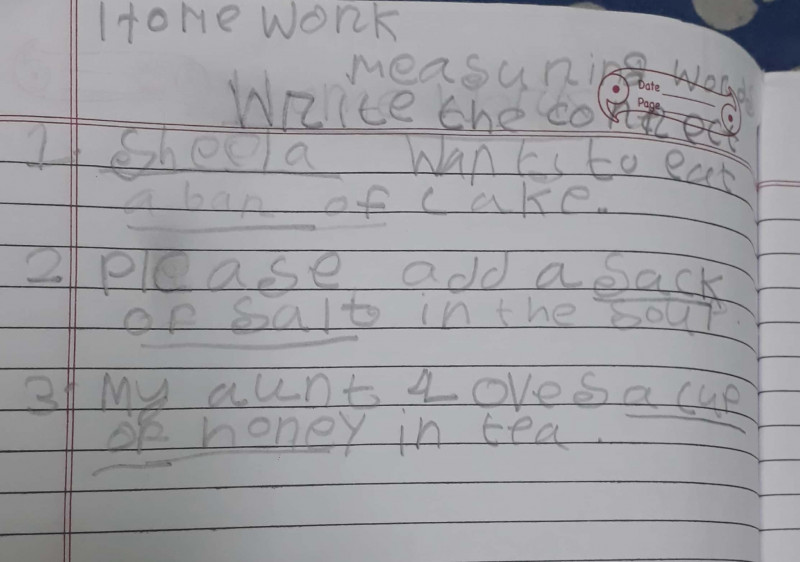 Home Work
measuring word
Date
Write the correct
Page
1. Sheela wants to eat
a bar of cake.
2. Please add a sack
of salt in the soup.
3. My aunt Loves a cup
of honey in tea.